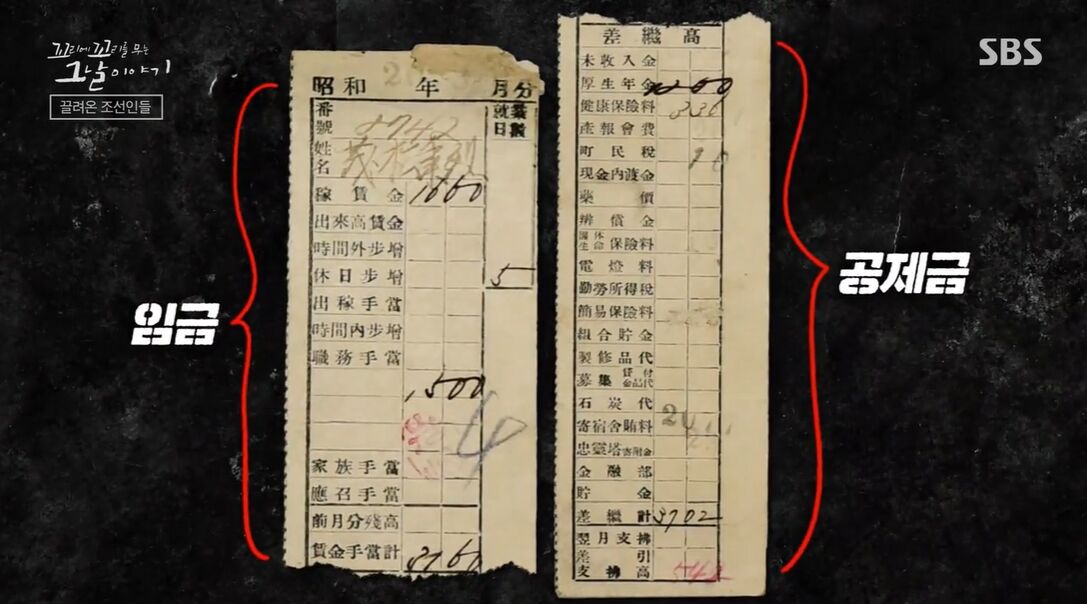 꼬리에 꼬리를 무는
그날 이야기
끌려온 조선인들
SBS
임금
昭和 20 年 月分
番號
就業日數
姓名
稼賃金 1660
出來高賃金
時間外步增
休日步增 5
出稼手當
時間內步增
職務手當
1,500
家族手當
應召手當
前月分殘高
賃金手當計 3160
差繼高
未收入金
厚生年金
健康保險料 336
產報會費
町民稅
現金內渡金
藥價
辨償金
團体生命保險料
電燈料
勤勞所得稅
簡易保險料
組合貯金
製修品代
募集貸付金品代
石炭代
寄宿舍賄料
忠靈塔寄附金
金融部
貯金
差繼計 3702
翌月支拂
差引支拂高 542
공제금